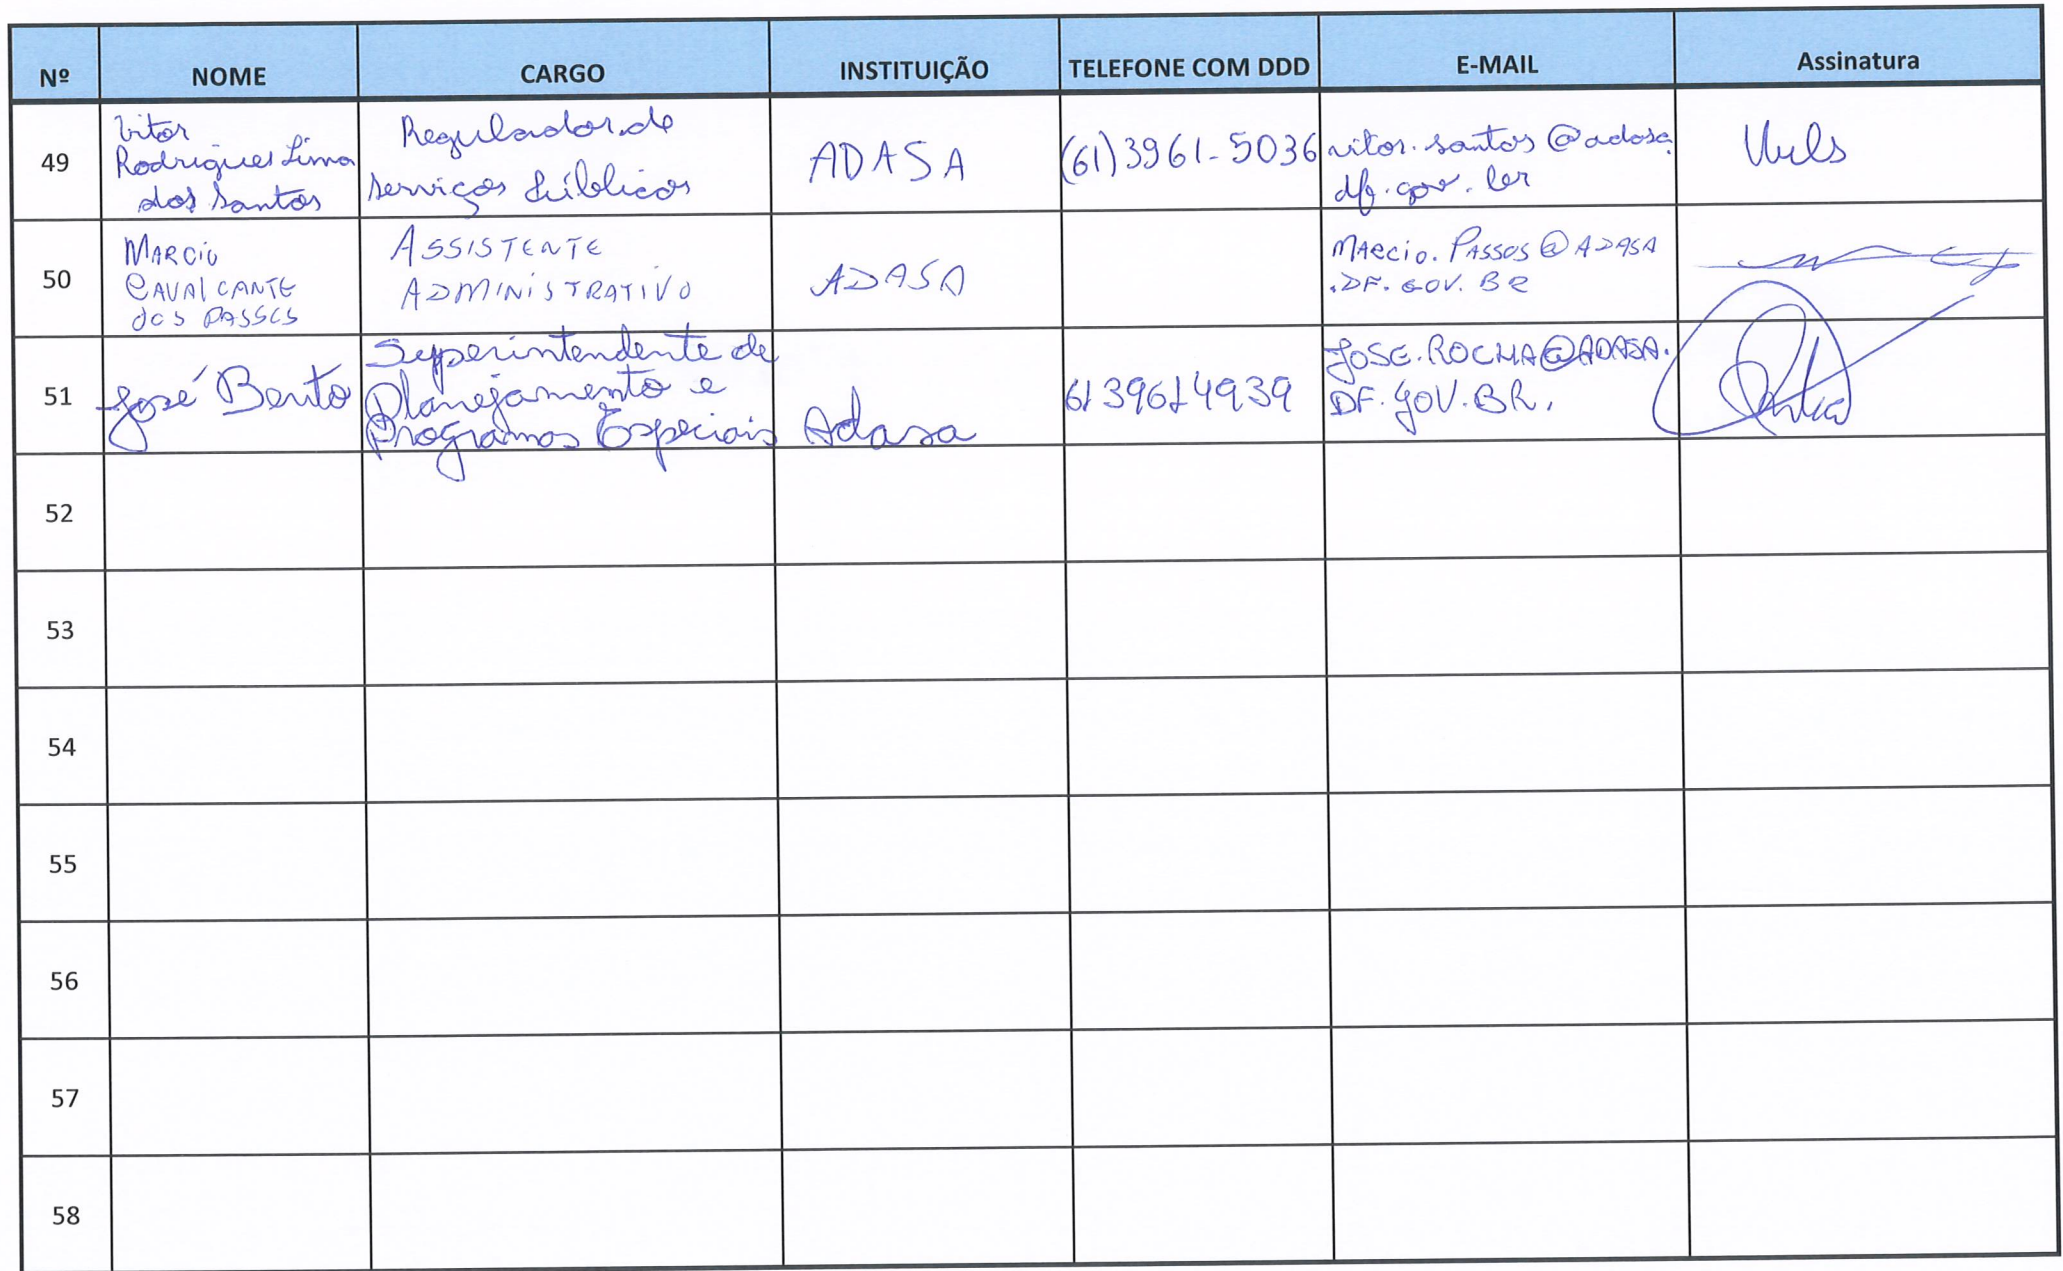 Nº NOME CARGO INSTITUIÇÃO TELEFONE COM DDD E-MAIL Assinatura
49
Vitor
Rodrigues Lima
dos Santos
Regulador de
Serviços Públicos
ADASA
(61)3961-5036
vitor.santos@adasa.
df.gov.br
50
MARCIO
CAVALCANTE
dos PASSOS
ASSISTENTE
ADMINISTRATIVO
ADASA
MARCIO.PASSOS@ADASA
.DF.GOV.BR
51
José Bento
Superintendente de
Planejamento e
Programas Especiais
Adasa
61 39614939
JOSE.ROCHA@ADASA.
DF.GOV.BR.
52
53
54
55
56
57
58